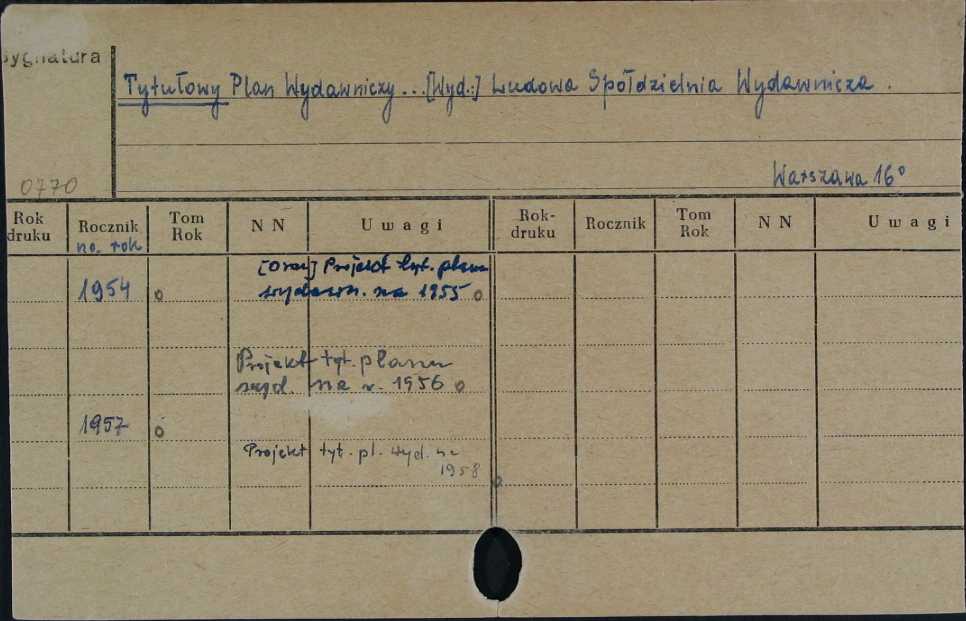 Sygnatura
Tytułowy Plan Wydawniczy ... [Wyd.:] Ludowa Spółdzielnia Wydawnicza.
0770
Warszawa 16°
Rok druku Rocznik na rok Tom Rok NN Uwagi Rok-druku Rocznik Tom Rok NN Uwagi
[Oraz] Projekt tyt. planu
1954 o wydawn. na 1955 o
Projekt tyt. planu
wyd. na r. 1956 o
1957 o
Projekt tyt. pl. wyd. na
1958 o